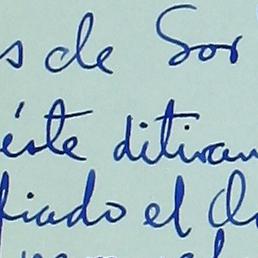 s de Sor
éste ditiram
fiado el